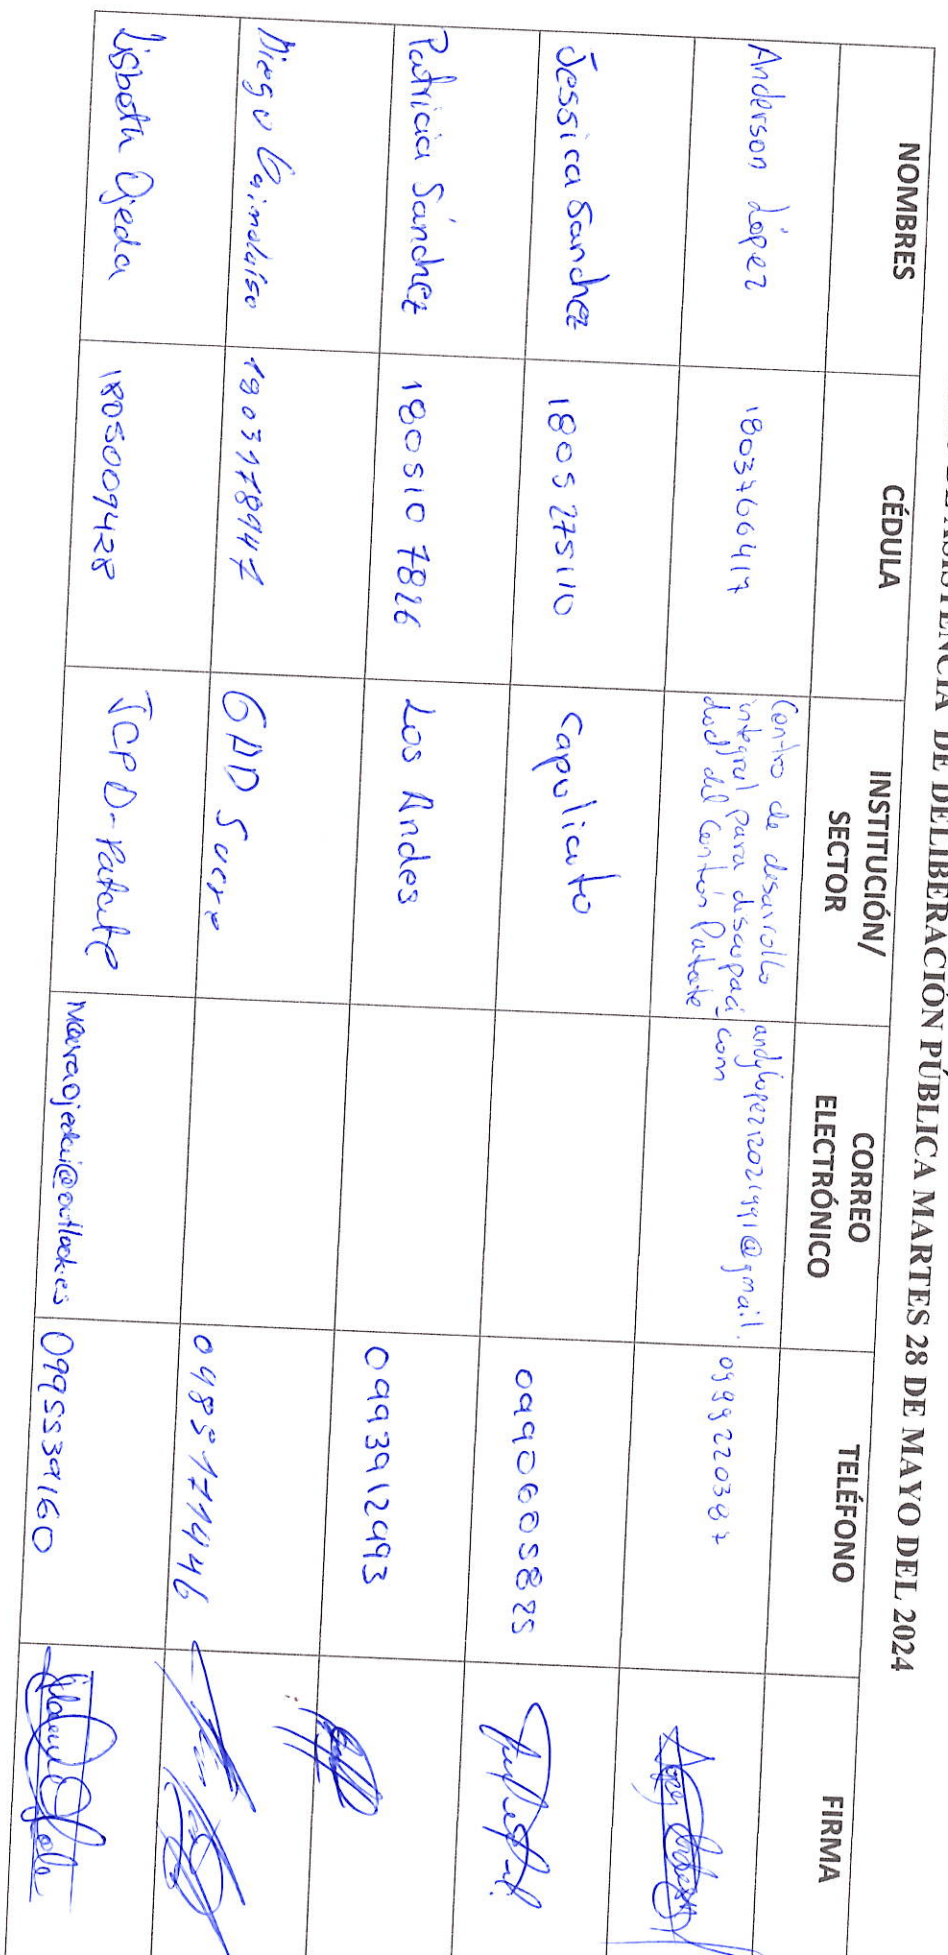 DE ASISTENCIA DE DELIBERACIÓN PÚBLICA MARTES 28 DE MAYO DEL 2024
NOMBRES CÉDULA INSTITUCIÓN/ SECTOR CORREO ELECTRÓNICO TELÉFONO FIRMA
Anderson López 1803766417 Centro de desarrollo integral para discapaci_dad del Cantón Patate andylopez12021991@gmail.com 0999220387
Jessica Sanchez 1805275110 Capulicuto 0990605825
Patricia Sánchez 1805107826 Los Andes 0993912993
Diego 1803178947 GAD Sucre 0985171446
Lisbeth Ojeda 1805009428 JCPD-Patate 0995539160